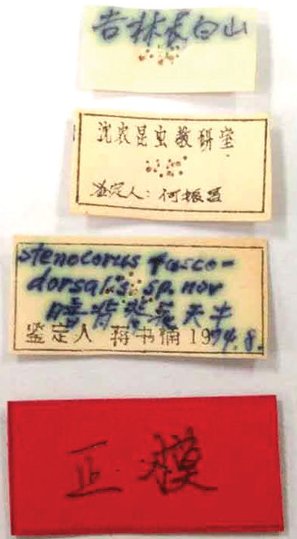 吉林长白山
沈农昆虫教研室
鉴定人：何振昌
Stenocorus fusco-
dorsalis sp. nov
暗背花天牛
鉴定人 蒋书楠 1974.8.
正模